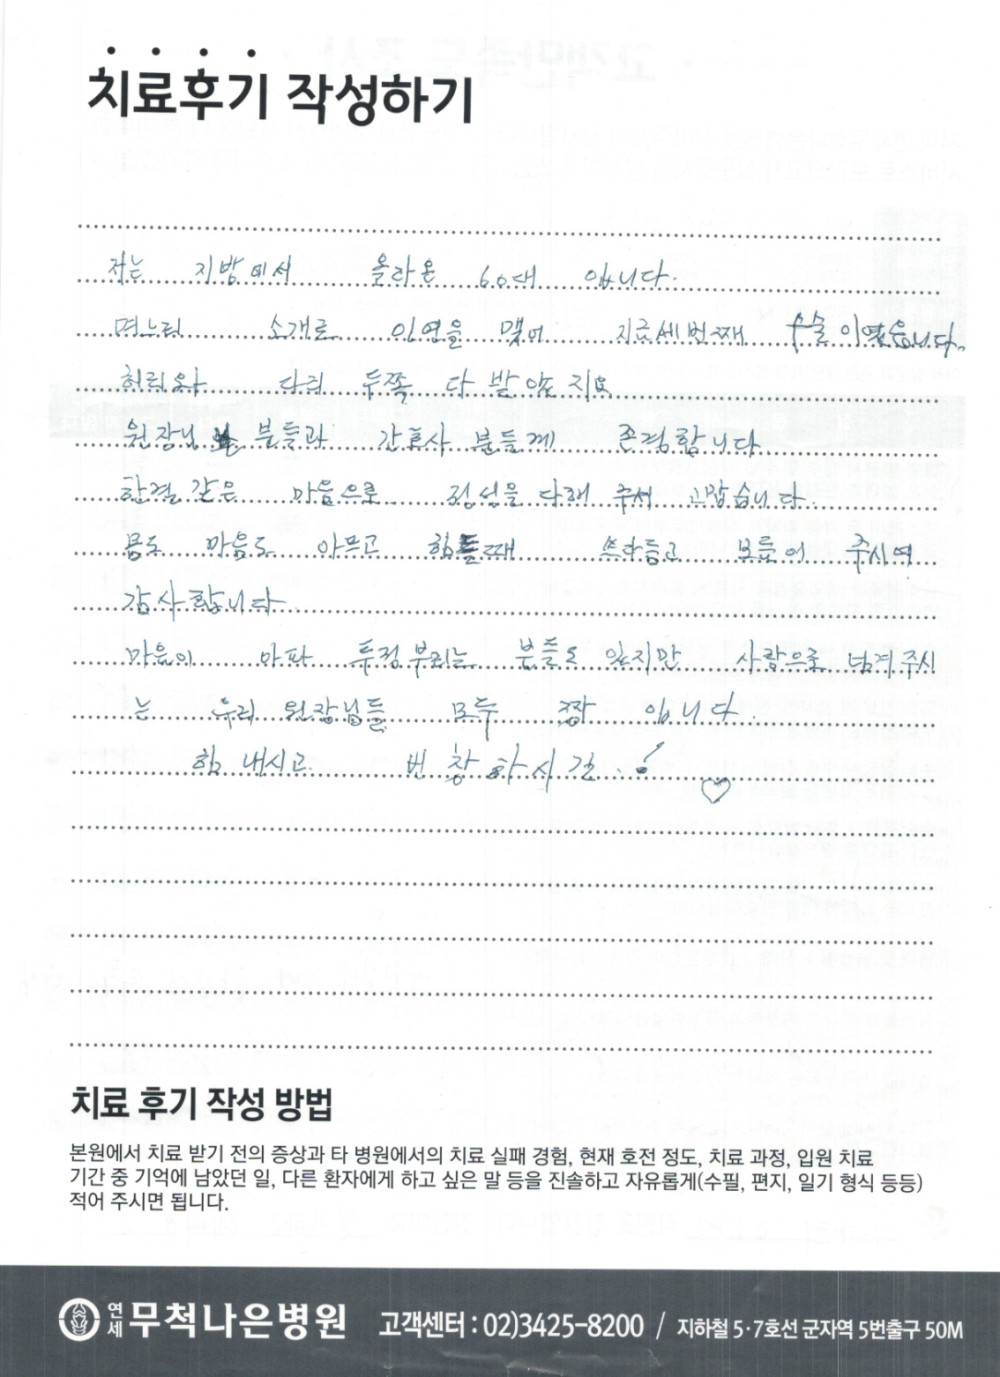 치료후기 작성하기
저는 지방에서 올라온 60대 입니다.
며느리 소개로 인연을 맺어 지금세번째 수술이였습니다.
허리와 다리 두쪽 다 받았지요
원장님 분들과 간호사 분들께 존경합니다
한결 같은 마음으로 정성을 다해 주셔 고맙습니다.
몸도 마음도 아프고 힘들때 쓰다듬고 보듬어 주시여
감사합니다
마음이 아파 투정부리는 분들도 있지만 사랑으로 넘겨주시
는 우리 원장님들 모두 짱 입니다.
힘 내시고 번창하시길..! ♡
치료 후기 작성 방법
본원에서 치료 받기 전의 증상과 타 병원에서의 치료 실패 경험, 현재 호전 정도, 치료 과정, 입원 치료
기간 중 기억에 남았던 일, 다른 환자에게 하고 싶은 말 등을 진솔하고 자유롭게(수필, 편지, 일기 형식 등등)
적어 주시면 됩니다.
연세 무척나은병원 고객센터 : 02)3425-8200 / 지하철 5·7호선 군자역 5번출구 50M